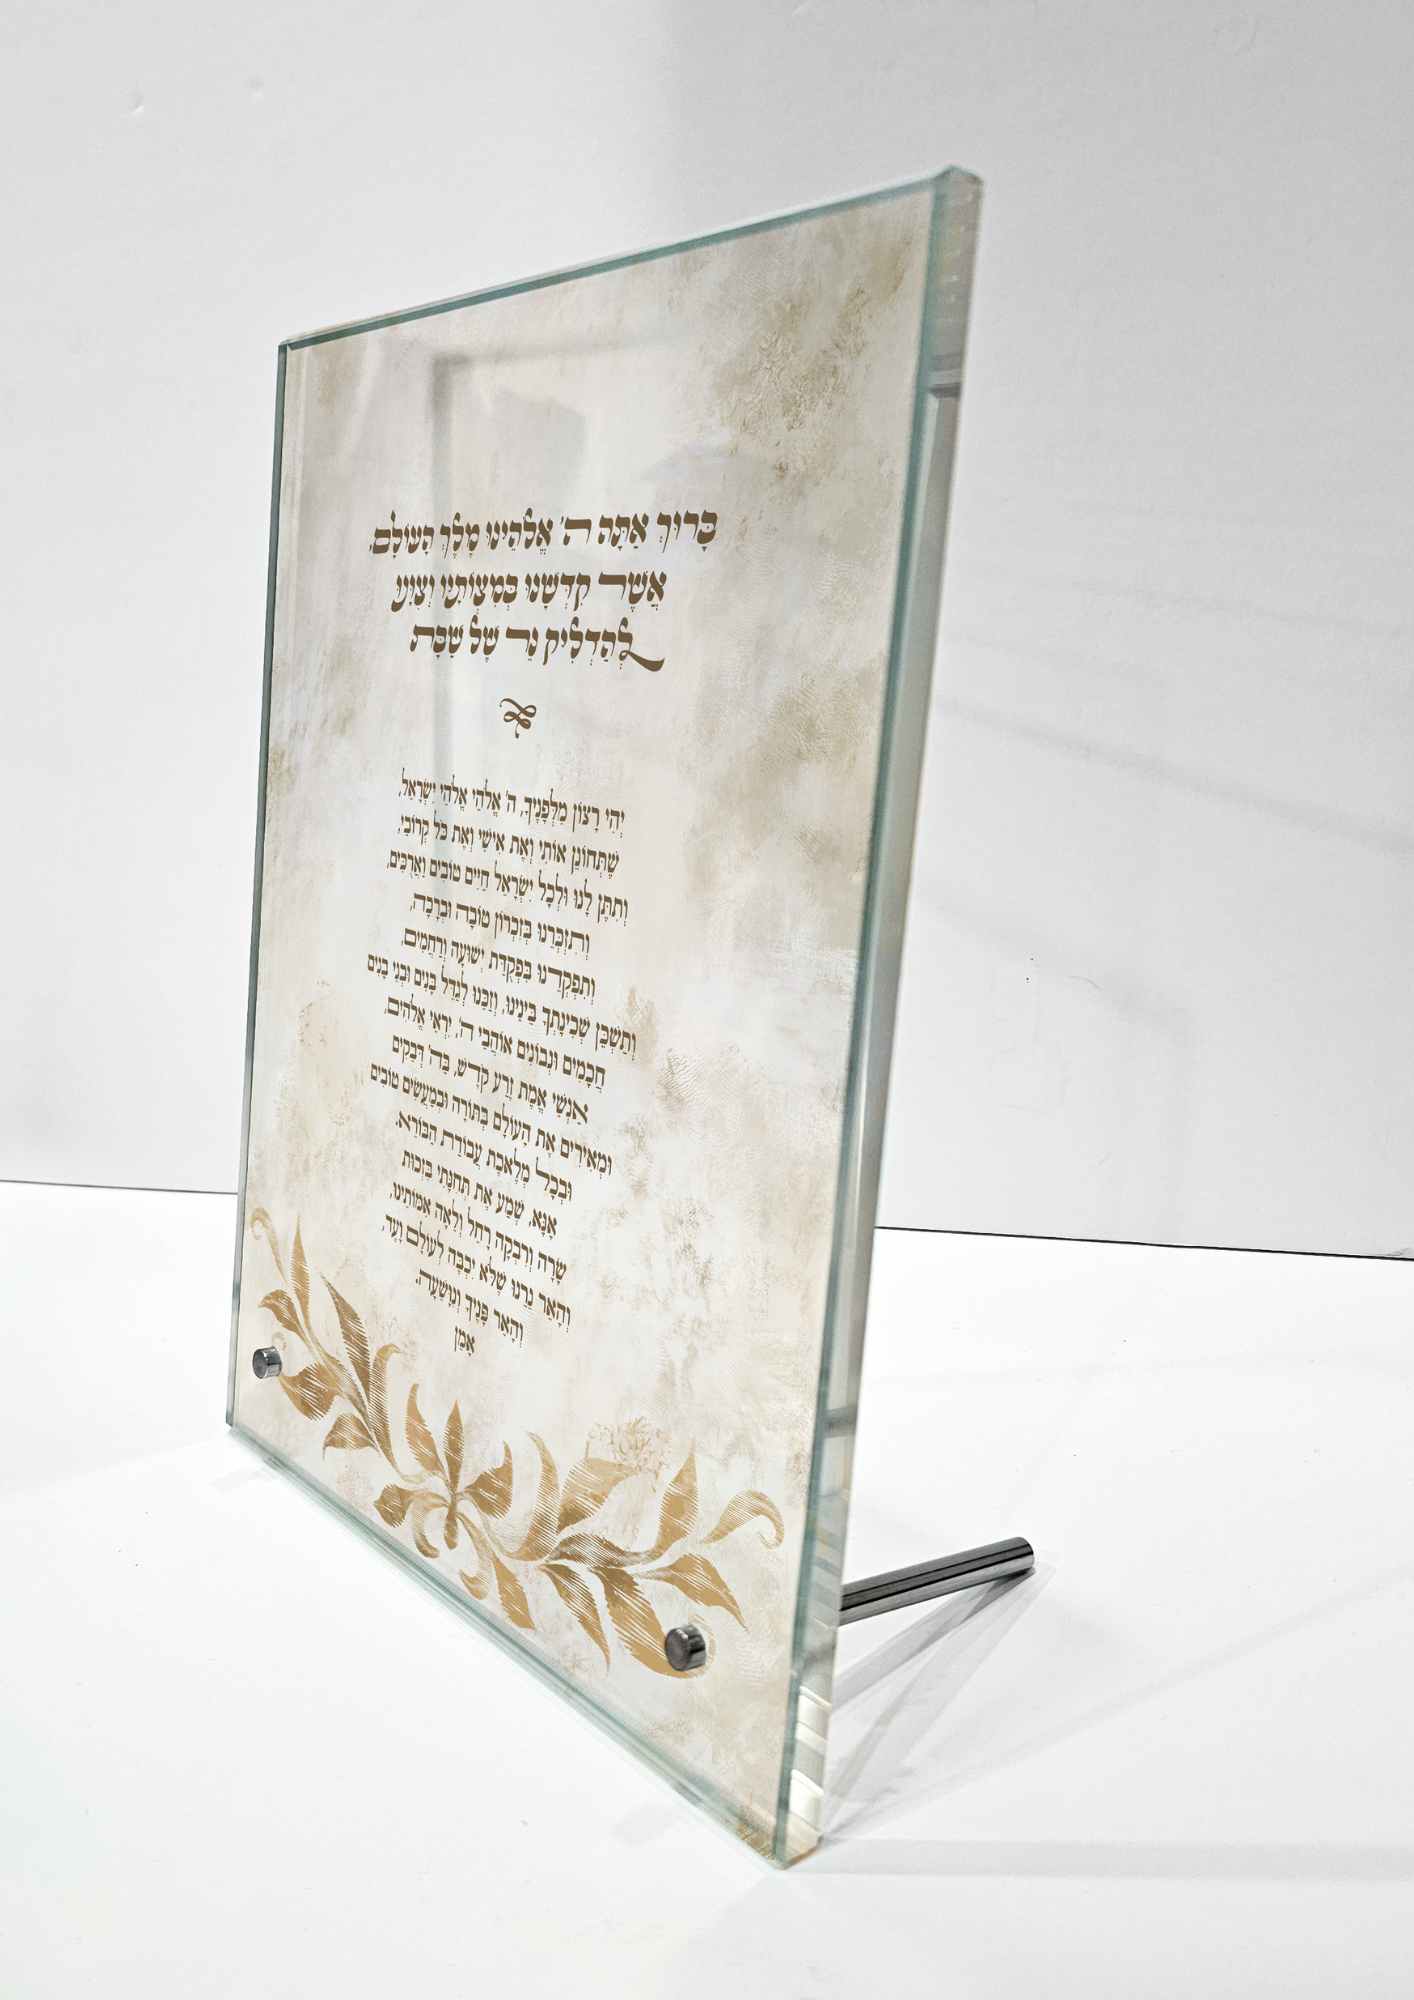 בָּרוּךְ אַתָּה ה' אֱלֹהֵינוּ מֶלֶךְ הָעוֹלָם,
אֲשֶׁר קִדְּשָׁנוּ בְּמִצְוֹתָיו וְצִוָּנוּ
לְהַדְלִיק נֵר שֶׁל שַׁבָּת
יְהִי רָצוֹן מִלְּפָנֶיךָ, ה' אֱלֹהַי אֱלֹהֵי יִשְׂרָאֵל,
שֶׁתְּחוֹנֵן אוֹתִי וְאֶת אִישִׁי וְאֶת כֹּל קְרוֹבַי,
וְתִתֵּן לָנוּ וּלְכָל יִשְׂרָאֵל חַיִּים טוֹבִים וַאֲרֻכִּים,
וְתִזְכְּרֵנוּ בְּזִכְרוֹן טוֹבָה וּבְרָכָה,
וְתִפְקְדֵנוּ בִּפְקֻדַּת יְשׁוּעָה וְרַחֲמִים,
וְתַשְׁכֵּן שְׁכִינָתְךָ בֵּינֵינוּ, וְזַכֵּנוּ לְגַדֵּל בָּנִים וּבְנֵי בָנִים
חֲכָמִים וּנְבוֹנִים אוֹהֲבֵי ה', יִרְאֵי אֱלֹהִים,
אַנְשֵׁי אֱמֶת זֶרַע קֹדֶשׁ, בַּה' דְּבֵקִים
וּמְאִירִים אֶת הָעוֹלָם בְּתוֹרָה וּבְמַעֲשִׂים טוֹבִים
וּבְכָל מְלֶאכֶת עֲבוֹדַת הַבּוֹרֵא.
אָנָּא, שְׁמַע אֶת תְּחִנָּתִי בִּזְכוּת
שָׂרָה וְרִבְקָה רָחֵל וְלֵאָה אִמּוֹתֵינוּ,
וְהָאֵר נֵרֵנוּ שֶׁלֹּא יִכְבֶּה לְעוֹלָם וָעֶד,
וְהָאֵר פָּנֶיךָ וְנִוָּשֵׁעָה.
אָמֵן